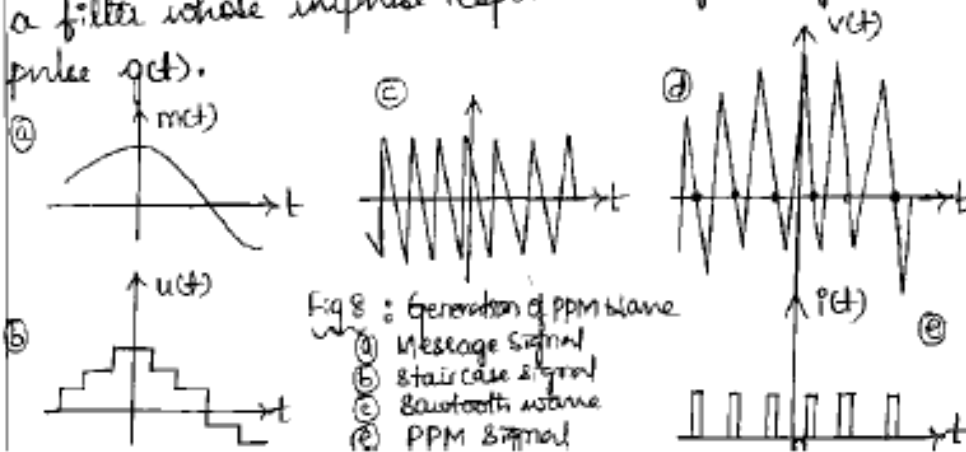 a filter whose impulse
pulse g(t).
ⓐ
m(t)
t
ⓒ
t
ⓓ
v(t)
t
ⓑ
u(t)
t
Fig 8 : Generation of PPM wave
ⓐ Message Signal
ⓑ staircase signal
ⓒ Sawtooth wave
ⓔ PPM Signal
i(t)
ⓔ
t